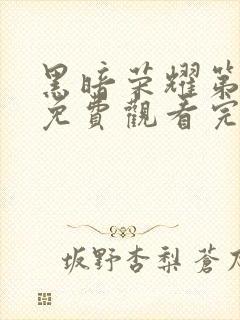 黑暗荣耀第
免費觀看完
坂野杏梨 蒼